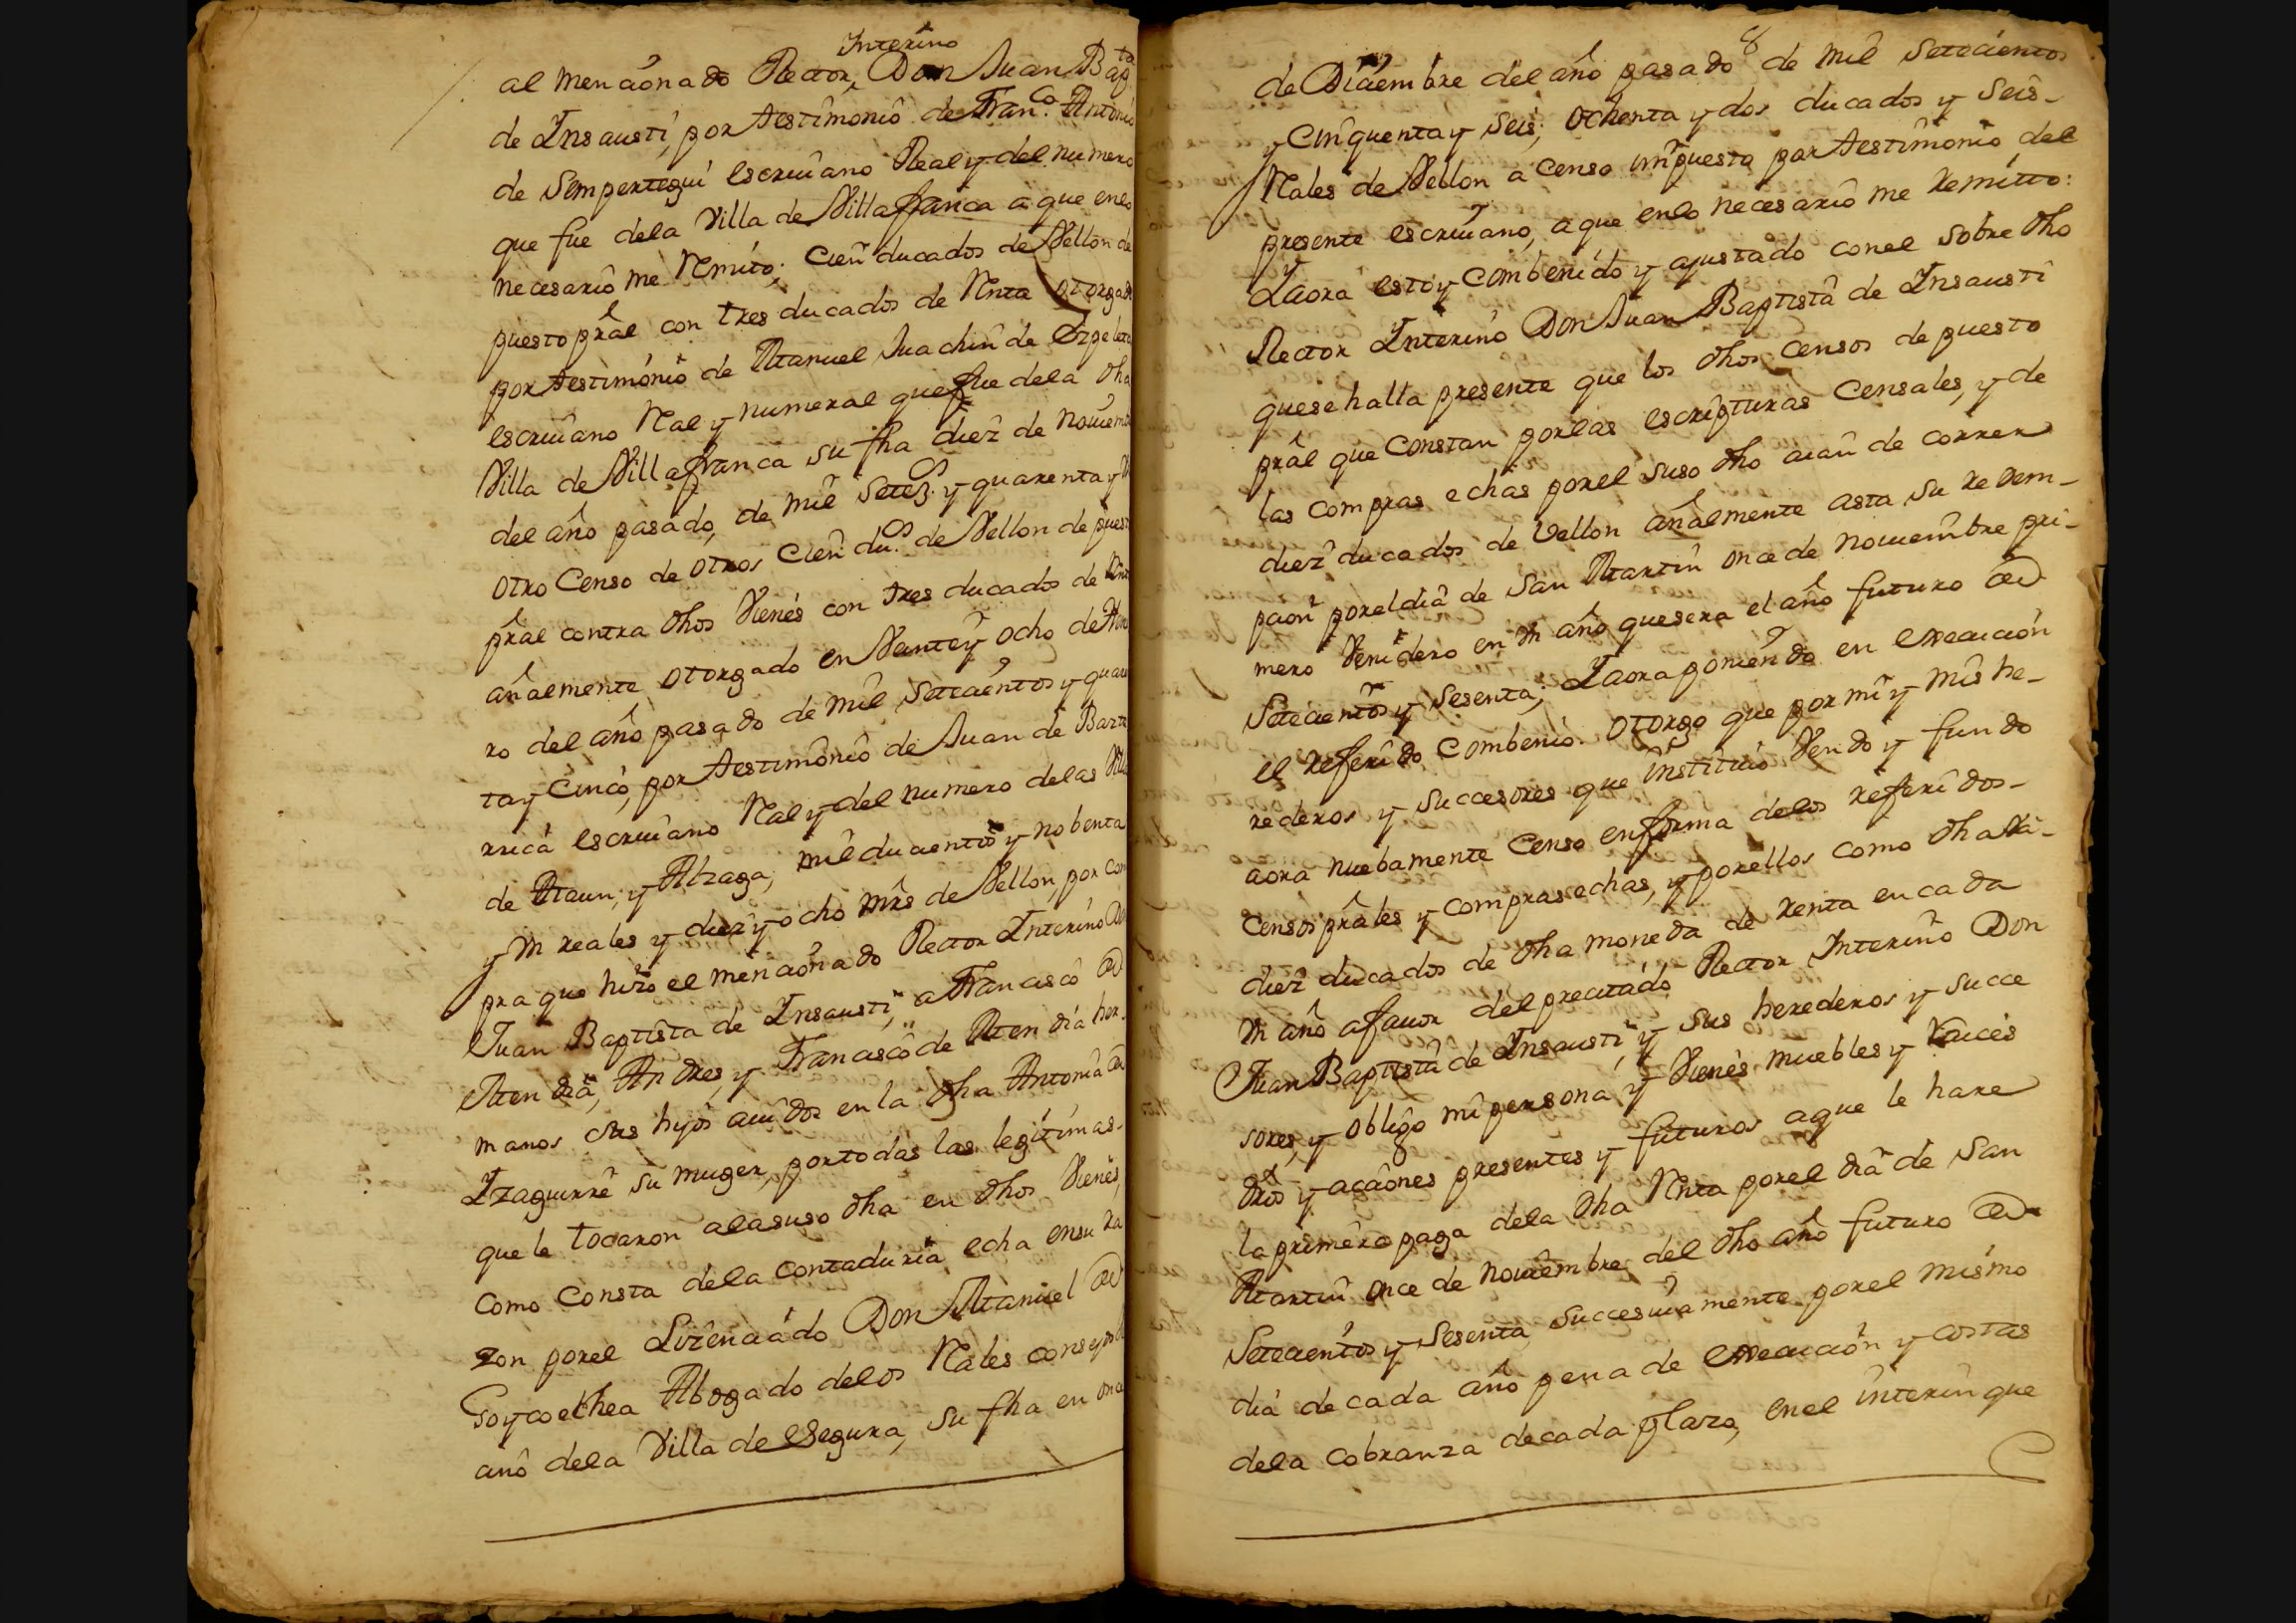 Interino
al mencionado Rector, Don Juan Bapta
de Insausti, por testimonio de Franco. Antonio
de Sempertegui escriuano Real y del numero
que fue dela Villa de Villafranca a que enlo
necesario me Rmito; Cien ducados de Vellon de
puesto pral con tres ducados de Rnta otorgado
por testimonio de Manuel Juachin de Ezpeleta
escriuano Ral y numeral que fue dela dha
Villa de Villafranca su fha diez de nouiem
del año pasado, de mil Setezs. y quarenta y
otro Censo de otros Cien dus. de Vellon de puest
pral contra dhos Vienes con tres ducados de Rnta
añalmente otorgado en Veintey ocho de
ro del año pasado de mil setecientos y quaren
tay Cinco, por testimonio de Juan de Barre
rruca escriuano Ral y del numero delas Villas
de Ataun, y Alzaga, mil ducientos y nobenta
y Vn reales y diez y ocho mrs de Vellon, por com
pra que hizo el mencionado Rector Interino Dn
Juan Baptista de Insausti, a Francisco de
Atendia, Andres, y Francisco de Atendia her-
manos sus hijos auidos en la dha Antonia de
Izaguirre su muger, por todas las legitimas-
que le tocaron alasuso dha en dhos Vienes,
como Consta dela Contaduria echa ensu ra
zon porel Lizenciado Don Manuel de
Goycoechea Abogado delos Rales conseyos
ano dela Villa de Segura, su fha en
8
de Diciembre del año pasado de mil setecientos
y Cinquenta y Seis; ochenta y dos ducados y Seis-
Rales de Vellon a Censo impuesto por testimonio del
presente escriuano, aque enlo necesario me Remitto:
Yaora estoy Combenido y ajustado conel sobre dho
Rector Interino Don Juan Baptista de Insausti
quesehalla presente que los dhos Censos de puesto
pral que Constan porlas escripturas Censales, y de
las Compras echas porel suso dho aian de correr
diez ducados de Vellon añalmente asta su redem-
pcion poreldia de San Martin once de nouiembre pri-
mero Venidero en Vn año quesera el año futuro de
Setecientos y Sesenta; Yaora poniendo en execucion
el Referido Combenio. Otorgo que por mi y mis he-
rederos y Succesores que instituio Vendo y fundo
aora nuebamente Censo enforma delos referidos-
Censos prales y compras echas, y porellos como dha Ra-
diez ducados de dha moneda de renta en cada
Vn año afauor del precitado Rector Interino Don
Juan Baptista de Insausti, y sus herederos y succe
sores, y obligo mi persona y Vienes muebles y Raices
dros y acciones presentes y futuros aque le hare
la primera paga dela dha Rnta porel dia de San
Martin once de nouiembre del dho año futuro de
Setecientos y Sesenta, Succesiuamente porel mismo
dia decada año pena de execucion y costas
dela Cobranza decada plazo, enel interin que